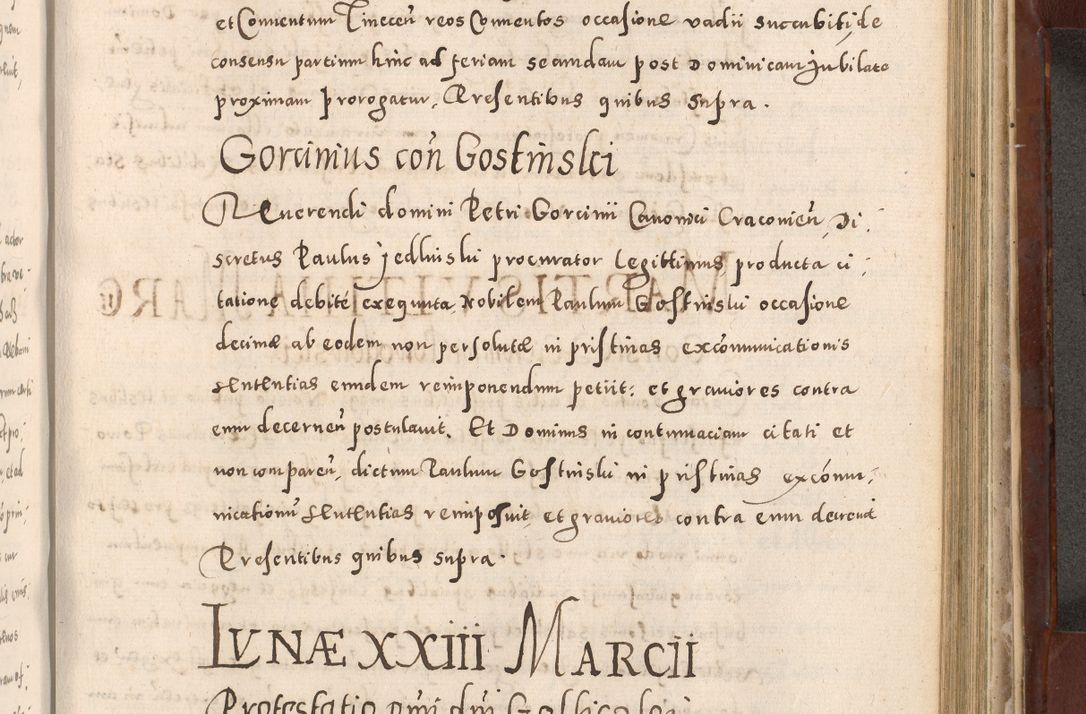 et Conuentum Tinecen̄ reos Conuentos occasione vadii succubiti, de
consensu partium hinc ad feriam secundam post Dominicam Jubilate
proximam prorogatur, Presentibus quibus supra.
Gorcinius con̄ Gostinslci
Reuerendi domini Petri Gorcinii Canonici Cracouien̄, Di:
scretus Paulus Jedluislui procurator legittimus producta ci:
tatione debité exequuta, Nobilem Paulum Gostinslui occasione
decimæ ab eodem non persolutæ in pristinas excōmunicationis
sententias eundem reimponendum petiit: et grauiores contra
eum decernen̄ postulauit. Et Dominus in contumaciam citati et
non comparen̄, dictum Paulum Gostinslui in pristinas excōmu:
nicationū sententias reimposuit, et grauiores contra eum decreuit
Presentibus quibus supra.
LVNÆ XXIII MARCII
Protestatio